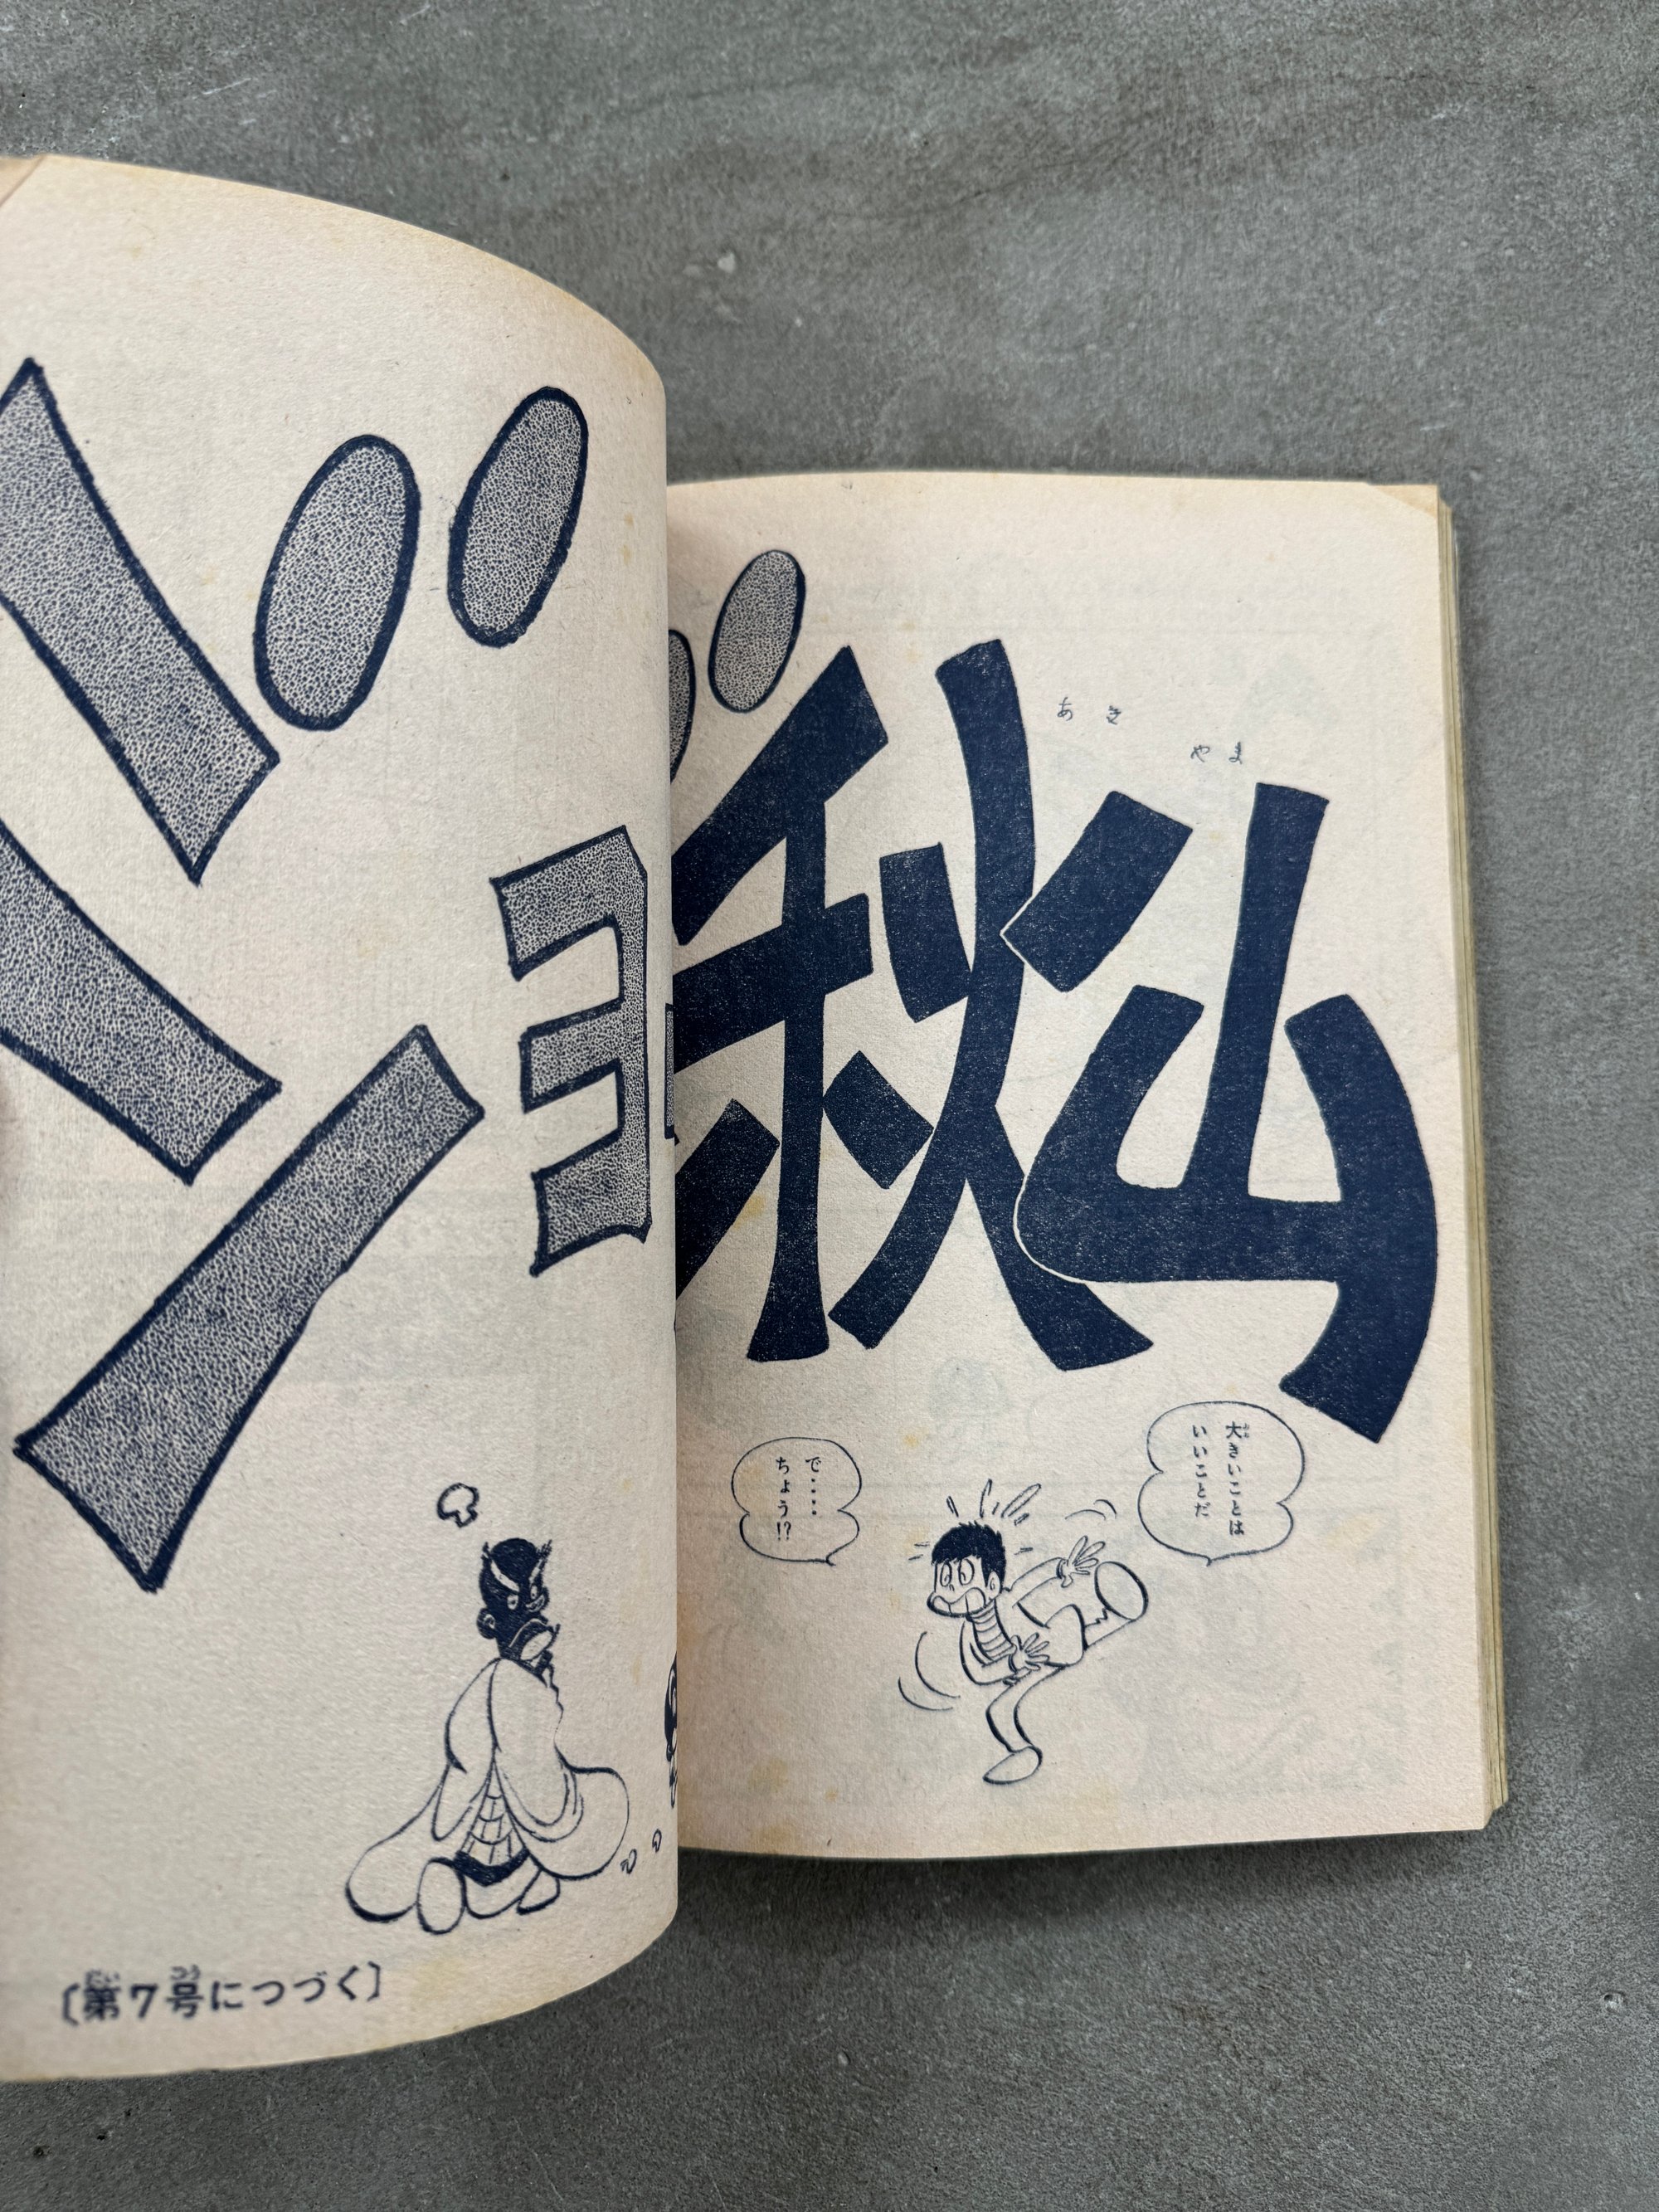 あき やま
秋山
大きいことは
いいことだ
で‥‥
ちょう!?
ジョ
〔第7号につづく〕